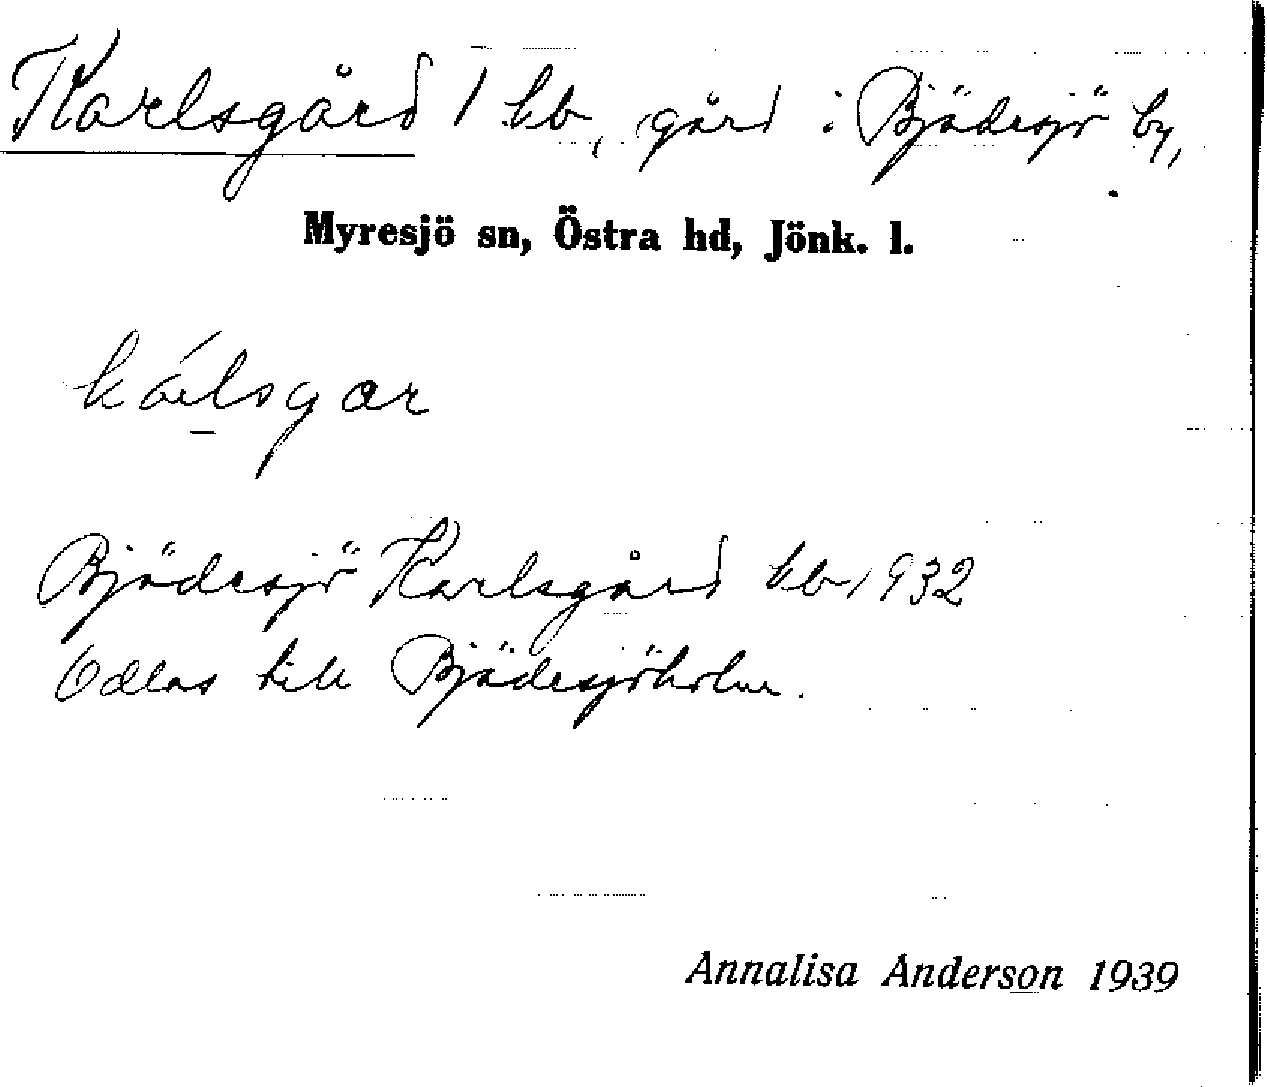 Karlsgård 1 kb, gård i Bjädesjö by,
Myresjö sn, Östra hd, Jönk. l.
Bjädesjö Karlsgård kb 1932
Odlas till Bjädesjöholm.
Annalisa Anderson 1939